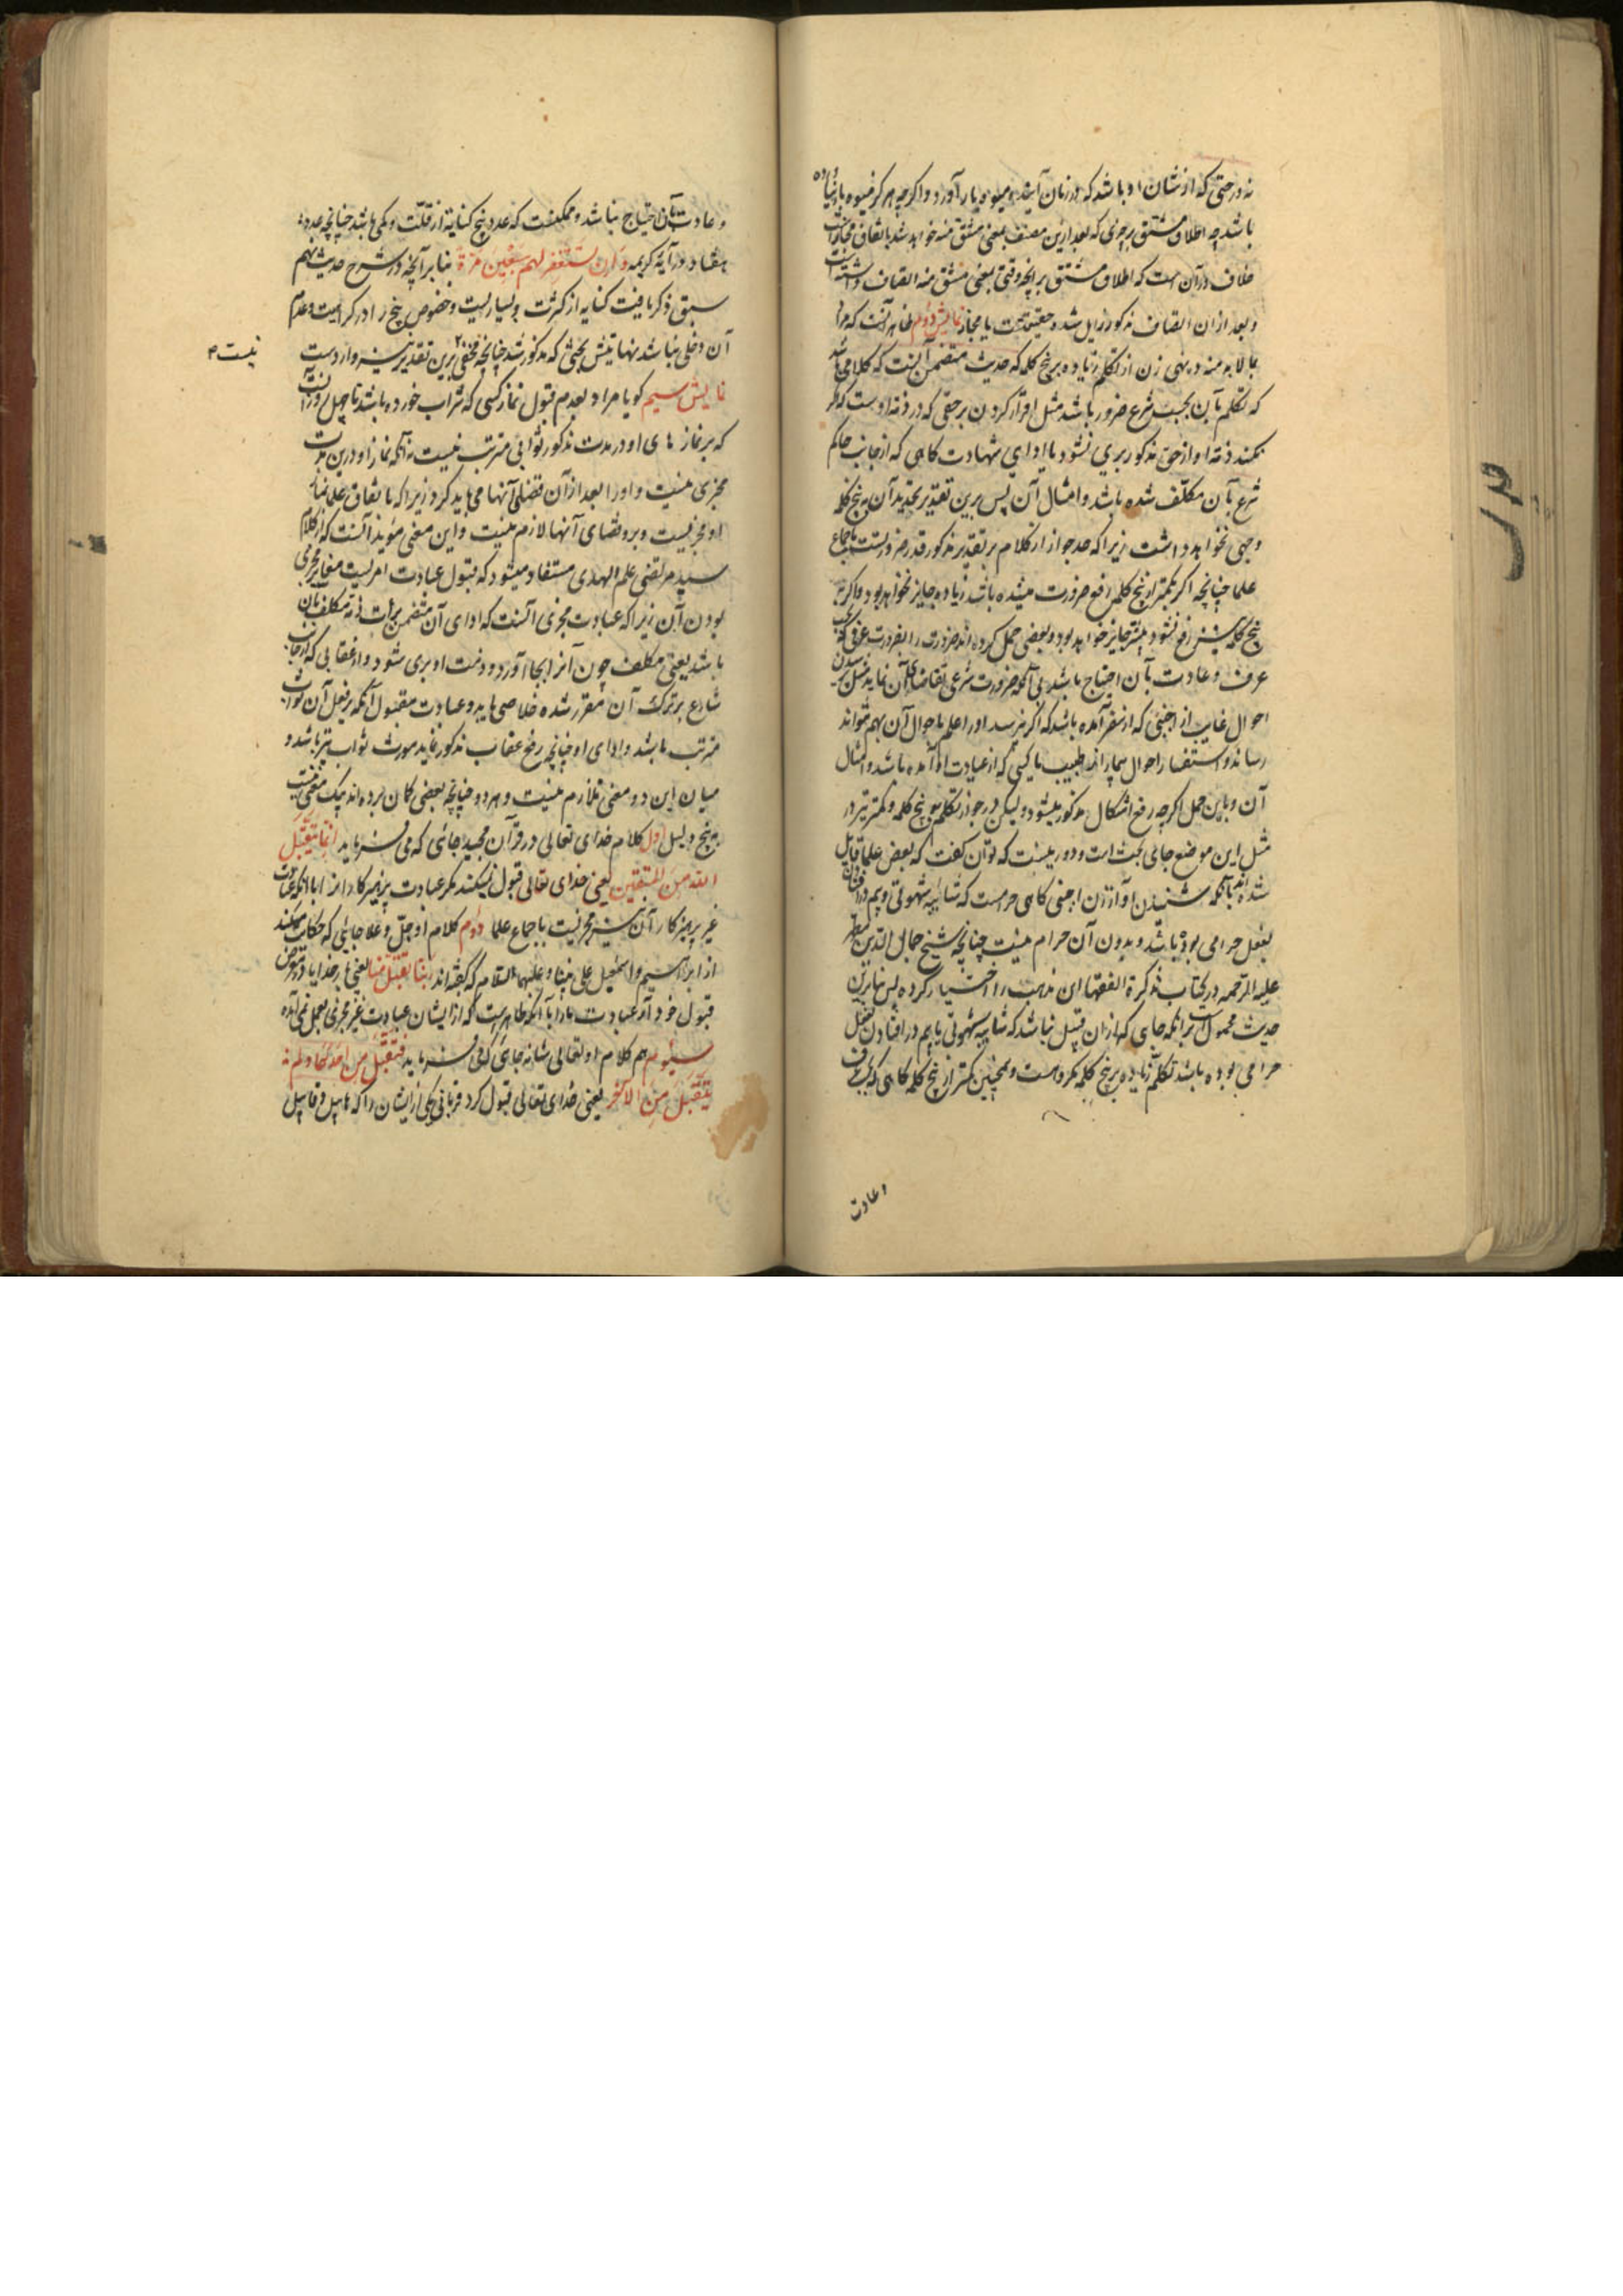 نه درختی که از شان او باشد که در زمان آینده میوه بار آورد و اگرچه هرگز میوه بار نیاورده
باشد چه اطلاق مشتق بر چیزی که بعد ازین متصف بمعنی مشتق منه خواهد شد باتفاق مجاز است
خلاف در آن است که اطلاق مشتق بر آنچه وقتی بمعنی مشتق منه اتصاف داشته است
و بعد از ان اتصاف مذکور زایل شده حقیقت است یا مجاز نمایش دوم ظاهر آنست که مراد
بما لا بد منه در نهی زن از تکلم زیاده بر پنج کلمه که حدیث متضمن آنست که کلامی باشد
که تکلم بآن بحسب شرع ضرور باشد مثل اقرار کردن بر حقی که در ذمه اوست که اگر
نکند ذمه او از حق مذکور بری نشود یا ادای شهادت گاهی که از جانب حاکم
شرع بآن مکلف شده باشد و امثال آن پس برین تقدیر تحدید آن به پنج کلمه
وجهی نخواهد داشت زیرا که حد جواز از کلام بر تقدیر مذکور قدر ضرورتست باجماع
علما چنانچه اگر بکمتر از پنج کلمه رفع ضرورت میشده باشد زیاده جایز نخواهد بود و اگر به
پنج کلمه رفع نشود بیشتر جایز خواهد بود و بعضی حمل کرده اند ضرورت را بضرورت عرفی که بحسب
عرف و عادت بآن احتیاج باشد بی آنکه ضرورت شرعی تقاضای آن نماید مثل پرسیدن
احوال غایب از اجنبی که از سفر آمده باشد که اگر نپرسد او را علم باحوال آن بهم نتواند
رساند و استفسار احوال بیمار از طبیب یا کسی که از عیادت او آمده باشد و امثال
آن و باین حمل اگرچه رفع اشکال مذکور میشود و لیکن در جواز تکلم به پنج کلمه و کمتر نیز در
مثل این موضع جای بحث است و دور نیست که توان گفت که بعض علما قایل
شده اند بآنکه شنیدن آواز زن اجنبی گاهی حرامست که شائبه شهوتی و بیم در افتادن
بفعل حرامی بوده باشد و بدون آن حرام نیست چنانچه شیخ جمال الدین مطهر
علیه الرحمه در کتاب تذکرة الفقها این مذهب را اختیار کرده پس بنابرین
حدیث محمول است برآنکه جای که از ان قبیل نباشد که شایبه شهوتی یا بیم در افتادن بفعل
حرامی بوده باشد تکلم زیاده بر پنج کلمه مکروهست و همچنین کمتر از پنج کلمه گاهی که بحسب عرف
و عادت
و عادت بآن احتیاج نباشد و ممکنست که عدد پنج کنایة از قلت و کمی باشد چنانچه عدد
هفتاد در آیه کریمه و ان تستغفر لهم سبعین مرة بنابر آنچه در شرح حدیث نهم
سبق ذکر یافت کنایه از کثرت و بسیاریست و خصوص پنج را در کراهیت و عدم
آن دخلی نباشد نهایتش بحثی که مذکور شد چنانچه مخفی برین تقدیر نیز وارد است
نیست
نمایش سیم گویا مراد بعدم قبول نماز کسی که شراب خورده باشد تا چهل روز آنست
که بر نماز های او در مدت مذکور ثوابی مترتب نیست نه آنکه نماز او درین مدت
مجزی نیست و او را بعد از آن قضای آنها می باید کرد زیرا که باتفاق علما نماز
او مجزیست و برو قضای آنها لازم نیست و این معنی مؤید آنست که از کلام
سید مرتضی علم الهدی مستفاد میشود که قبول عبادت امریست مغایر مجزی
بودن آن زیرا که عبادت مجزی آنست که ادای آن متضمن برائت ذمه مکلف بآن
باشد یعنی مکلف چون آنرا بجا آورد و ذمت او بری شود و از عقابی که از جانب
شارع بر ترک آن مقرر شده خلاصی یابد و عبادت مقبول آنکه بر فعل آن ثواب
مترتب باشد و ادای او چنانچه رفع عقاب مذکور نماید مورث ثواب نیز باشد و
میان این دو معنی تلازم نیست و هر دو چنانچه بعضی گمان برده اند بیک معنی نیست
به پنج دلیل اول کلام خدای تعالی در قرآن مجید جائی که می فرماید انما یتقبل
الله من المتقین یعنی خدای تعالی قبول نمیکند مگر عبادت پرهیزکارانرا با آنکه عبادت
غیر پرهیزکار آن نیز مجزیست باجماع علما دوم کلام او جل و علا جایی که حکایت میکند
از ابراهیم و اسمعیل علی نبینا و علیهما السلام که گفته اند ربنا تقبل منا یعنی بار خدایا در معرض
قبول خود آر عبادت ما را با آنکه ظاهرست که از ایشان عبادت غیر مجزی بعمل نمی آمده
سیوم هم کلام او تعالی شانه جای که می فرماید فتقبل من احدهما و لم
یتقبل من الآخر یعنی خدای تعالی قبول کرد قربانی یکی از ایشان را که هابیل و قابیل